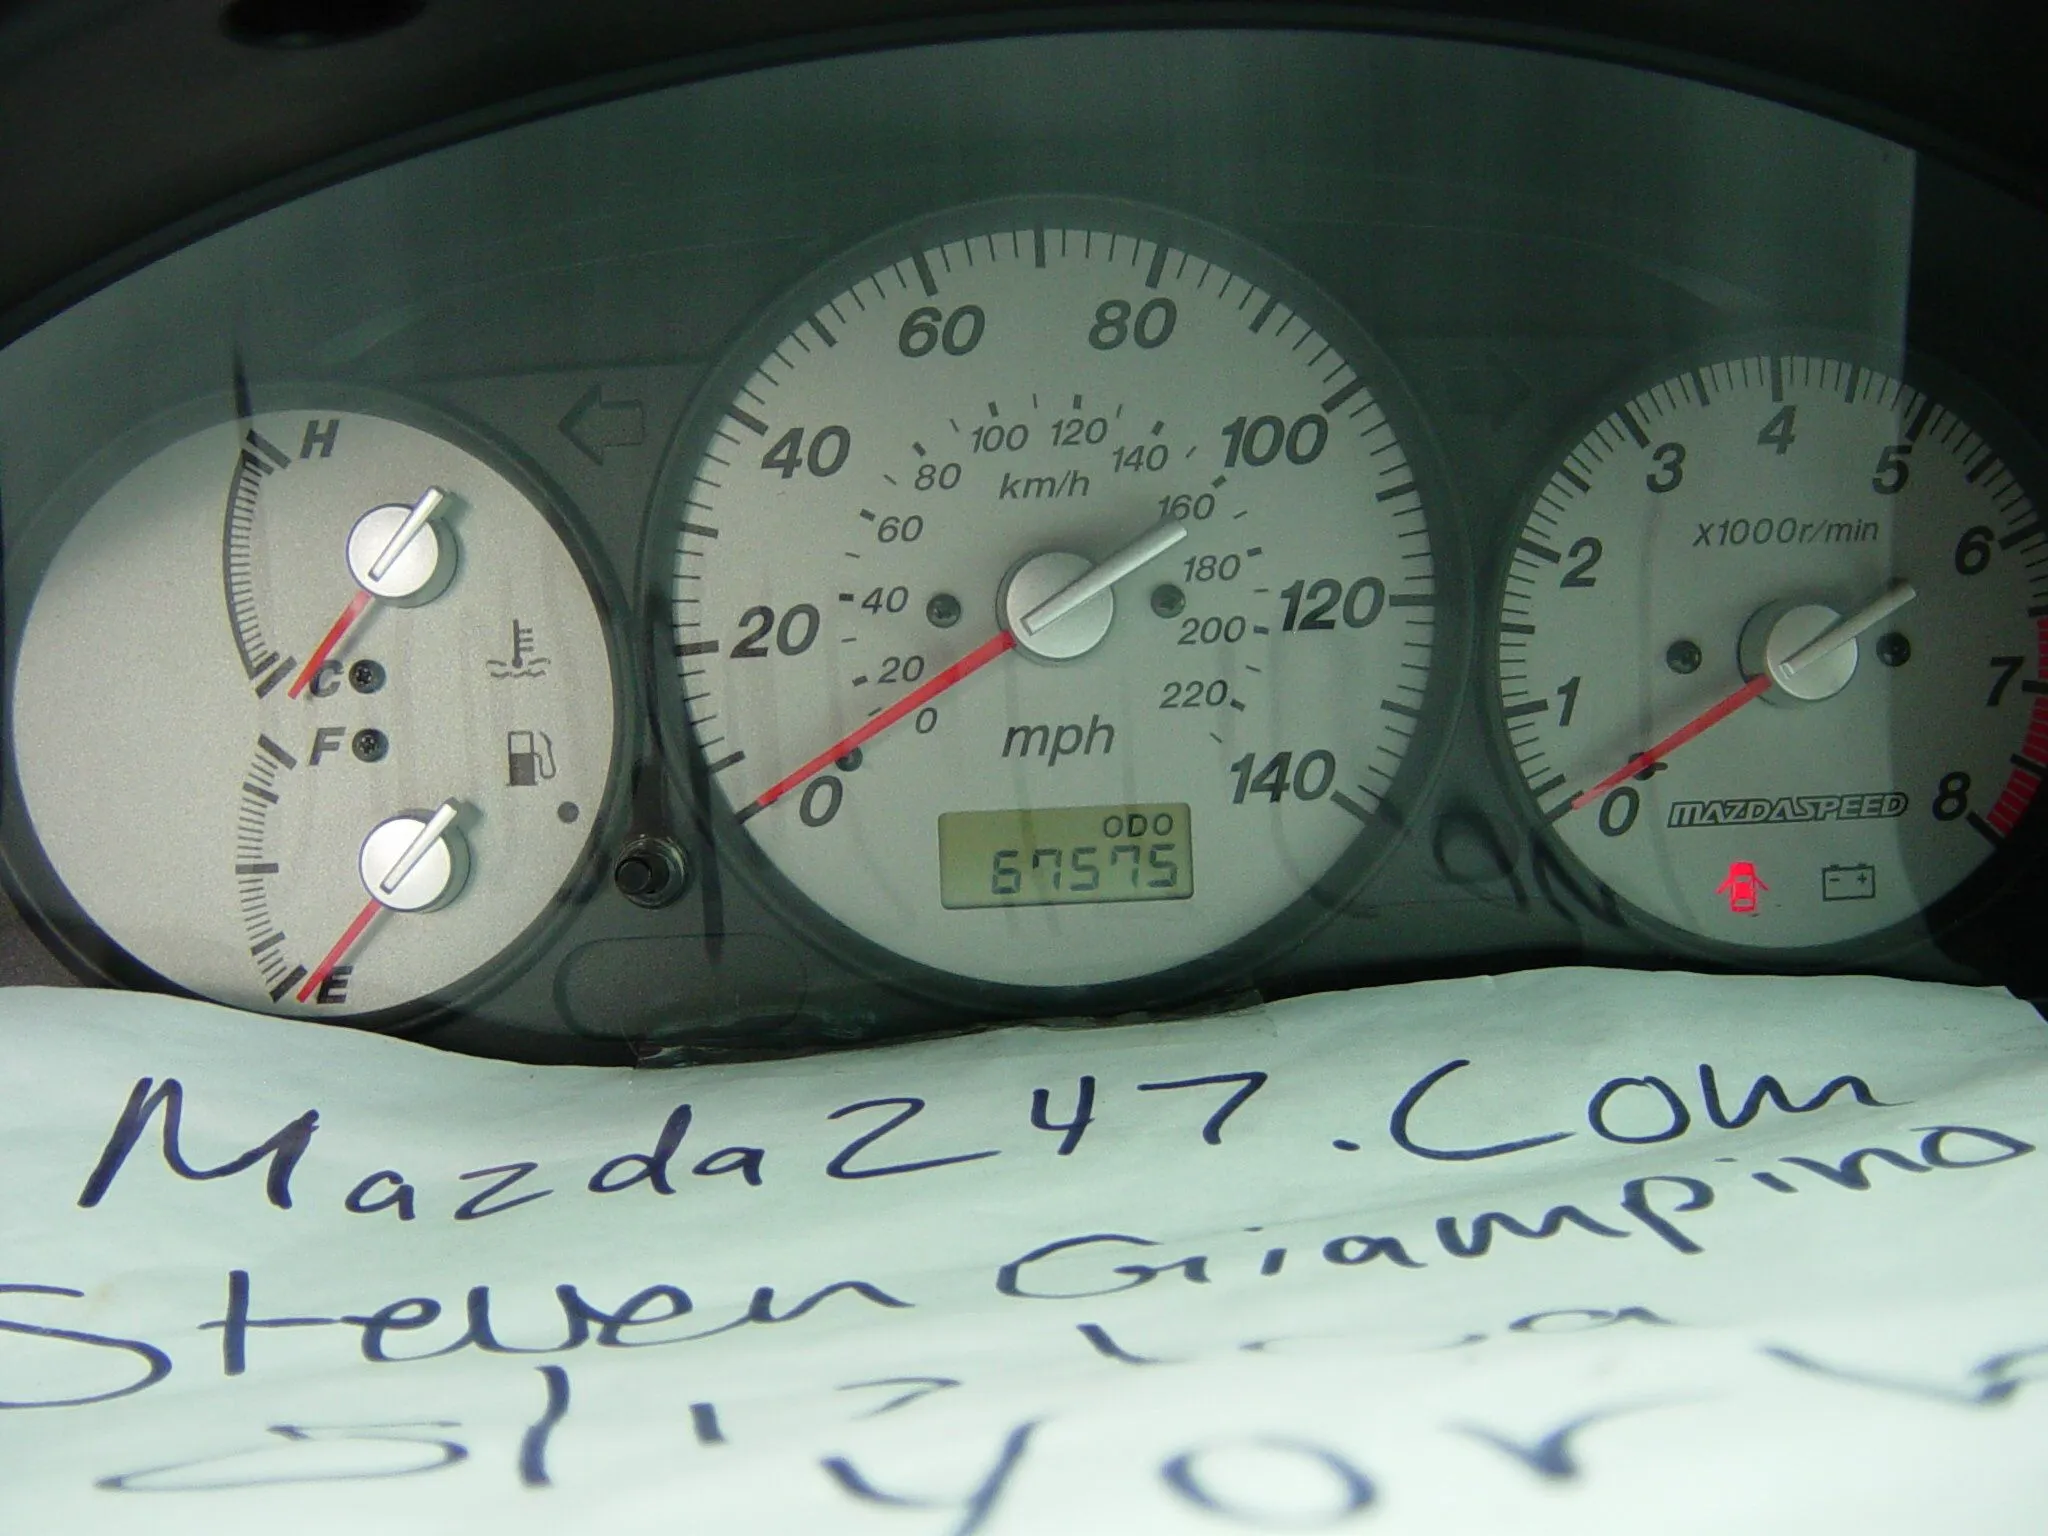 60 80
40 100
100 120
80 140
km/h
60 160
40 180
20 120
200
20 220
0
mph
0 140
ODO
67575
H
C
F
E
4
3 5
x1000r/min
2 6
1 7
0 MAZDASPEED 8
Mazda247.Com
Steven Giampino